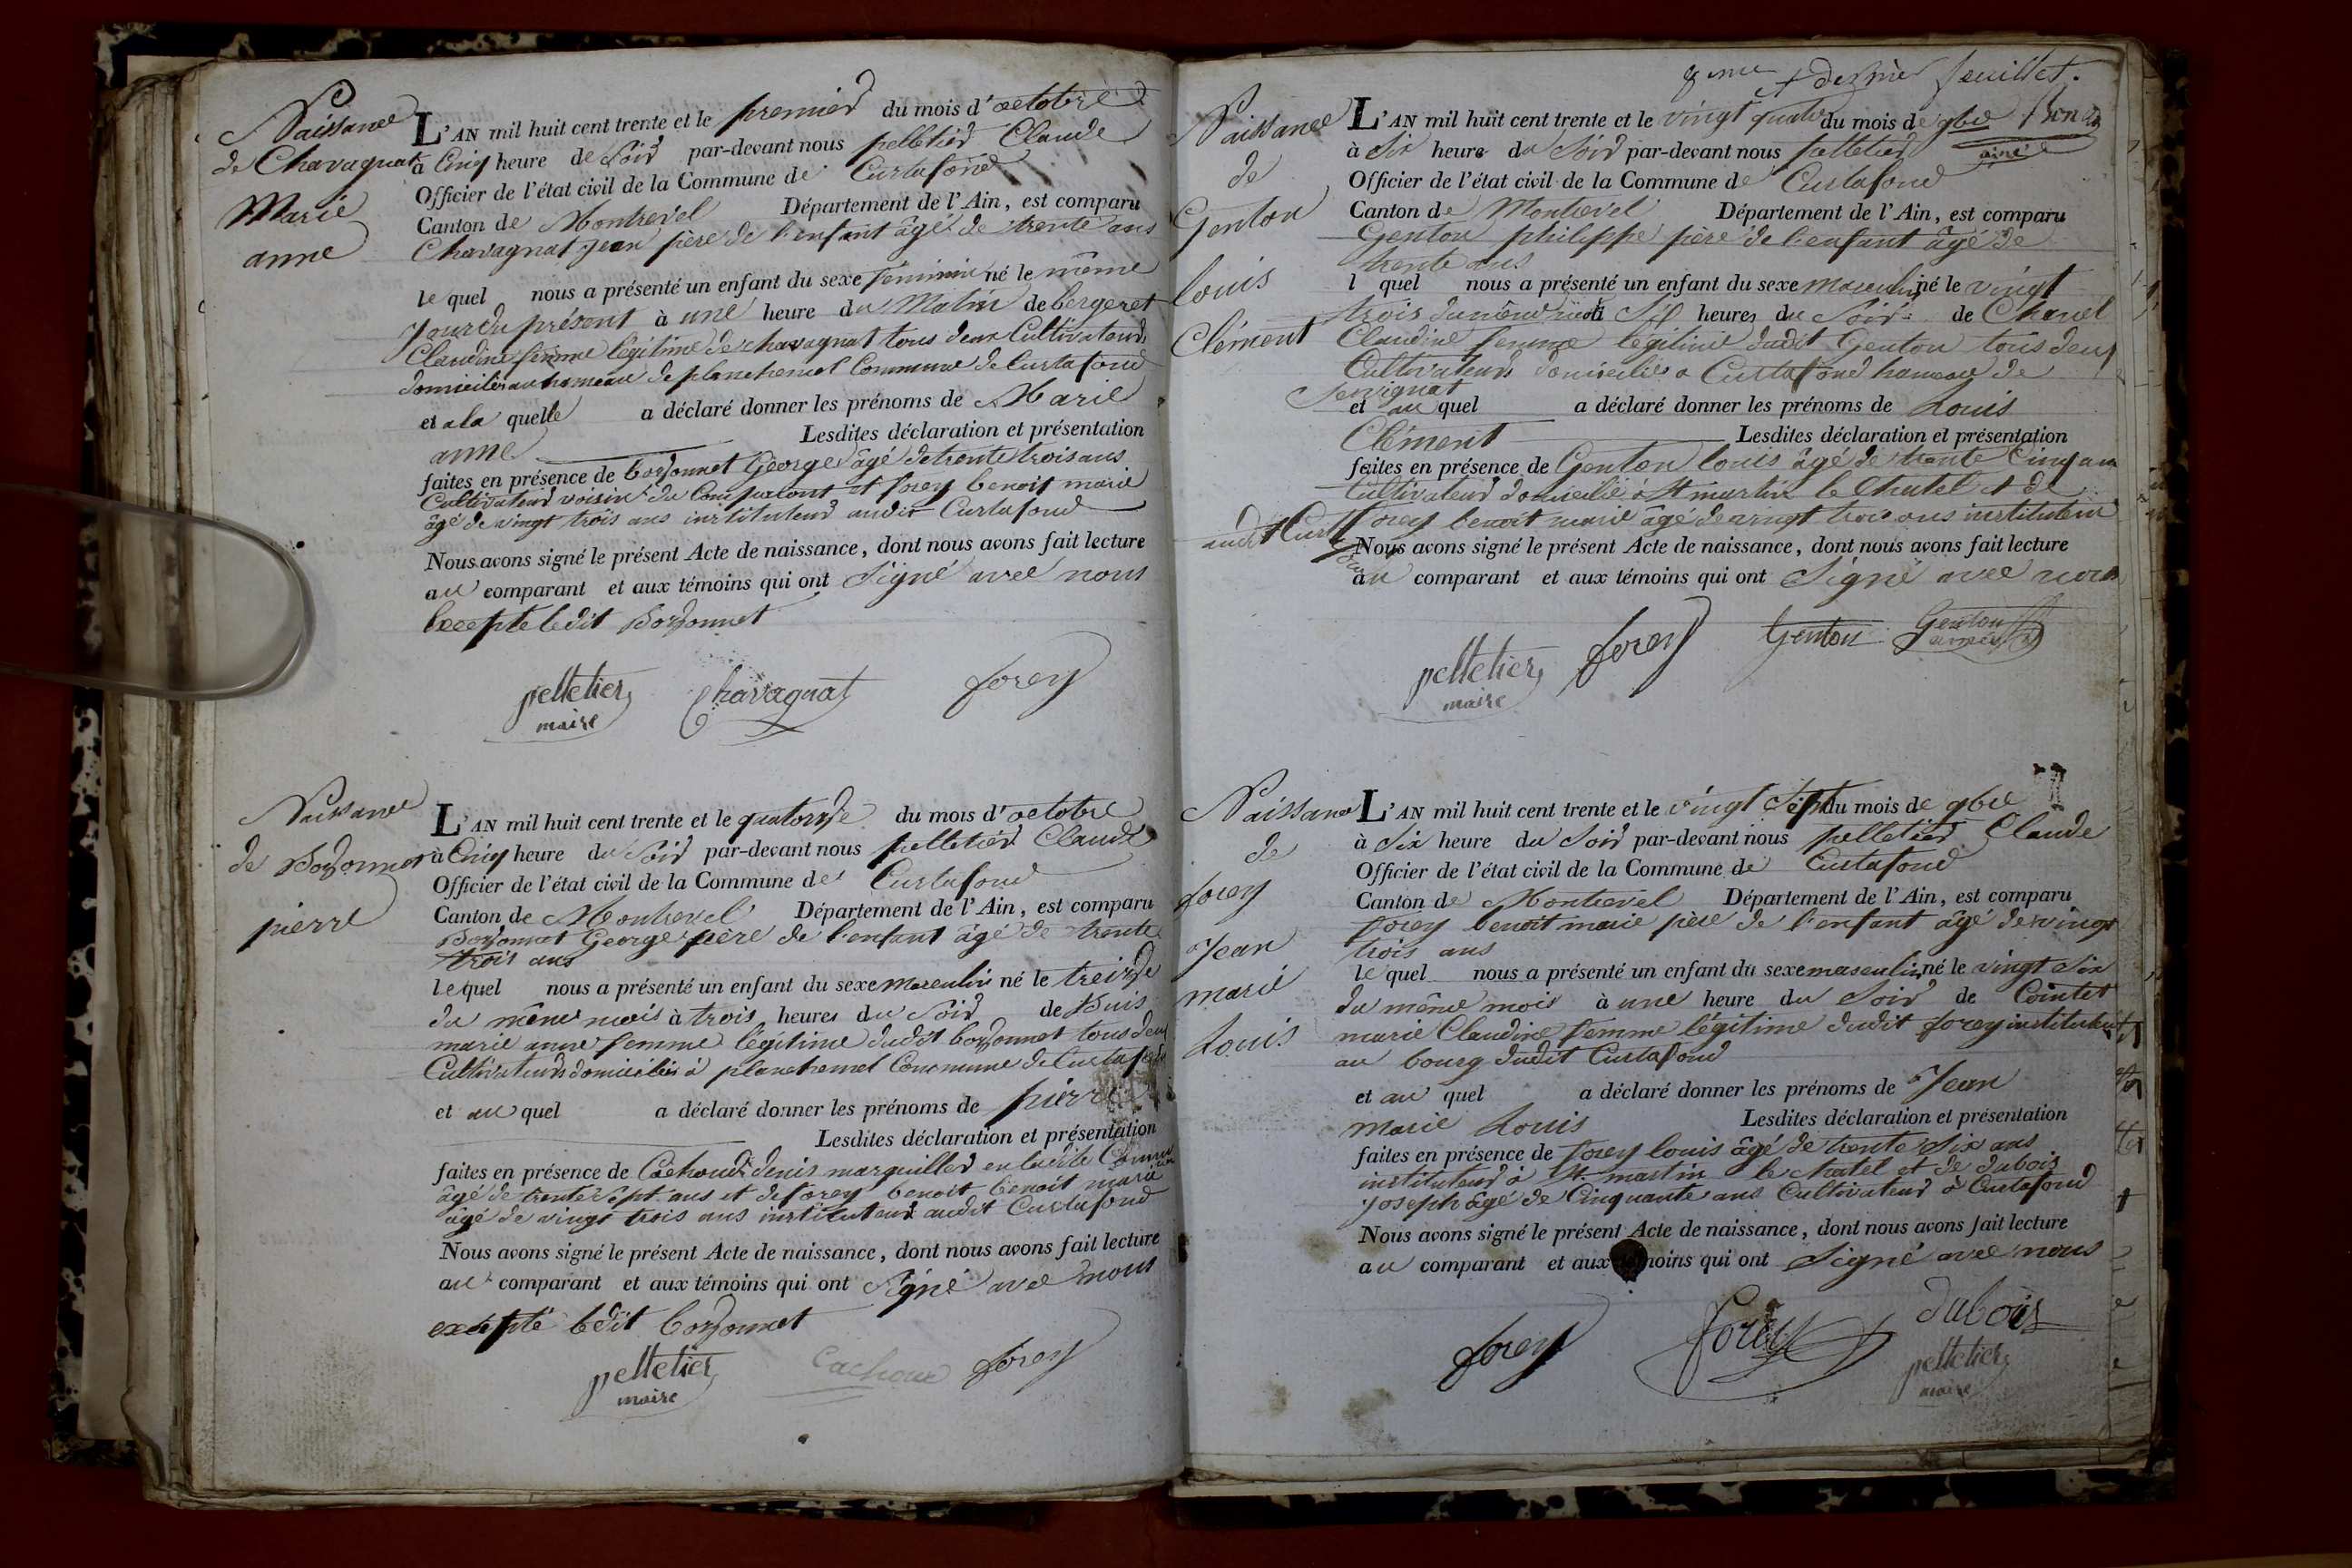 Naissance
de Chavagnat
Marie
anne
L'AN mil huit cent trente et le premier du mois d'octobre
à Cinq heure de Soir par-devant nous pelletier Claude
Officier de l'état civil de la Commune de Curtafond
Canton de Montrevel Département de l'Ain, est comparu
Chavagnat jean père de l'enfant âgé de trente ans
le quel nous a présenté un enfant du sexe féminin né le même
jour du présent à une heure du Matin de bergeret
Claudine femme légitime de chavagnat tous deux Cultivateurs
domiciliés au hameau de planchemel Commune de Curtafond
et a la quelle a déclaré donner les prénoms de Marie
anne Lesdites déclaration et présentation
faites en présence de bozonnet George âgé de trente trois ans
Cultivateur voisin du Comparant et forey benoit marie
âgé de vingt trois ans instituteur audit Curtafond
Nous avons signé le présent Acte de naissance, dont nous avons fait lecture
au comparant et aux témoins qui ont Signé avec nous
Excepté ledit Bozonnet
pelletier chavagnat forey
maire
Naissance
de Bozonnet
pierre
L'AN mil huit cent trente et le quatorze du mois d'octobre
à Cinq heure du Soir par-devant nous pelletier Claude
Officier de l'état civil de la Commune de Curtafond
Canton de Montrevel Département de l'Ain, est comparu
Bozonnet George père de l'enfant âgé de trente
trois ans
le quel nous a présenté un enfant du sexe masculin né le treize
du même mois à trois heures du Soir de Buis
marie anne femme légitime dudit bozonnet tous deux
Cultivateurs domiciliés à planchemel Commune de Curtafond
et au quel a déclaré donner les prénoms de pierre
Lesdites déclaration et présentation
faites en présence de Cachoud denis marguiller en ladite Commune
âgé de trente Sept ans et de forey benoit benoit marie
âgé de vingt trois ans instituteur audit Curtafond
Nous avons signé le présent Acte de naissance, dont nous avons fait lecture
au comparant et aux témoins qui ont Signé avec nous
excepté ledit bozonnet
pelletier Cachoux forey
maire
8eme et dernier feuillet.
Naissance
de
Genton
louis
Clément
L'AN mil huit cent trente et le vingt quatre du mois de 9bre
à Six heure du Soir par-devant nous pelletier
Officier de l'état civil de la Commune de Curtafond
Canton de Montrevel Département de l'Ain, est comparu
Genton philippe père de l'enfant âgé de
trente ans
l quel nous a présenté un enfant du sexe masculin né le vingt
trois du même mois à Six heures du Soir de Chanel
Claudine femme légitime dudit Genton tous deux
Cultivateurs domiciliés a Curtafond hameau de
Servignat
et au quel a déclaré donner les prénoms de Louis
Clément Lesdites déclaration et présentation
faites en présence de Genton louis âgé de trente Cinq ans
Cultivateur domicilié à St martin le Chatel et de
forey benoit marie âgé de vingt trois ans instituteur
audit Curtafond
Nous avons signé le présent Acte de naissance, dont nous avons fait lecture
au comparant et aux témoins qui ont Signé avec nous
pelletier forey Genton Genton
maire
Naissance
de
forey
Jean
marie
Louis
L'AN mil huit cent trente et le vingt Sept du mois de 9bre
à Six heure du Soir par-devant nous pelletier Claude
Officier de l'état civil de la Commune de Curtafond
Canton de Montrevel Département de l'Ain, est comparu
forey benoit marie père de l'enfant âgé de vingt
trois ans
le quel nous a présenté un enfant du sexe masculin né le vingt Six
du même mois à une heure du Soir de Cointet
marie Claudine femme légitime dudit forey instituteur
au bourg dudit Curtafond
et au quel a déclaré donner les prénoms de Jean
marie Louis Lesdites déclaration et présentation
faites en présence de forey louis âgé de trente Six ans
instituteur à St. martin le chatel et de dubois
joseph âgé de Cinquante ans Cultivateur à Curtafond
Nous avons signé le présent Acte de naissance, dont nous avons fait lecture
au comparant et aux témoins qui ont Signé avec nous
forey forey dubois
pelletier
maire